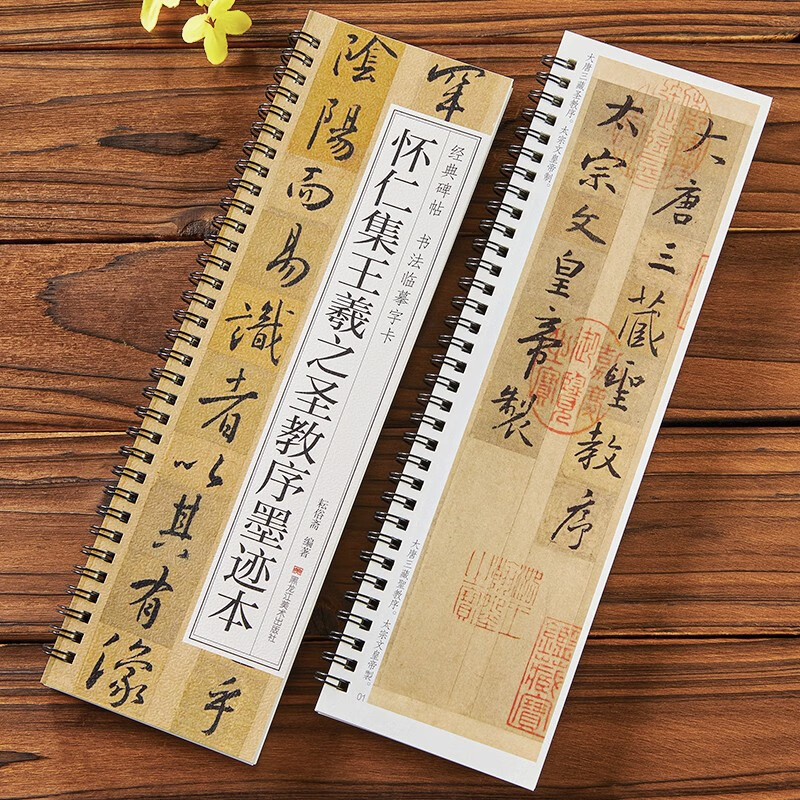 陰陽而易識者以其有像
乎
经典碑帖 书法临摹字卡
怀仁集王羲之圣教序墨迹本
耘俗斋 编著
黑龙江美术出版社
大唐三藏聖教序
太宗文皇帝製
大唐三藏圣教序。太宗文皇帝制。
大唐三藏聖教序。太宗文皇帝製。
01